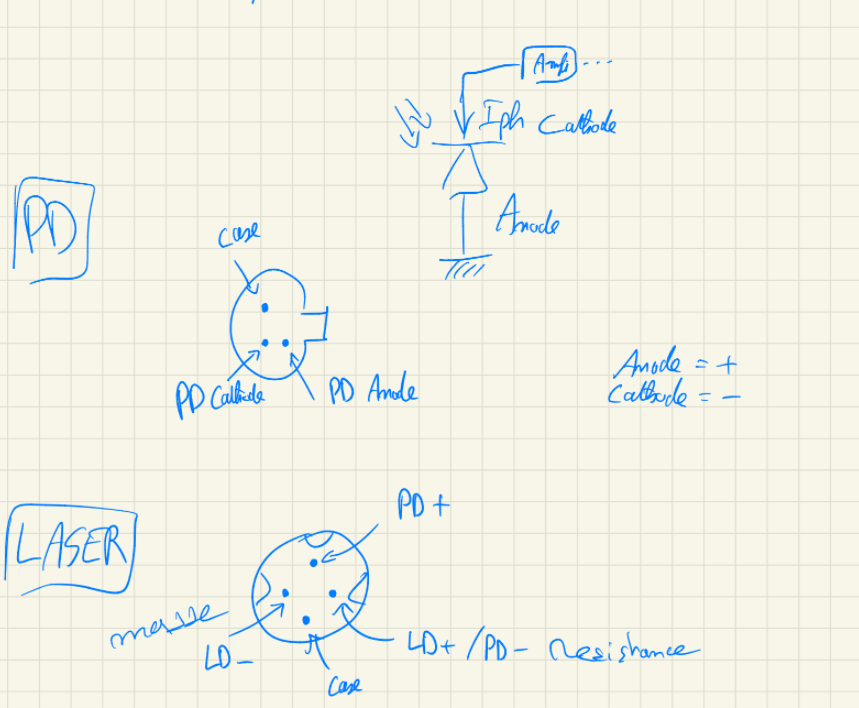 Ampli ...
Iph Cathode
Anode
PD
case
PD Cathode
PD Anode
Anode = +
Cathode = -
LASER
PD +
masse
LD -
LD + / PD - Resistance
Case